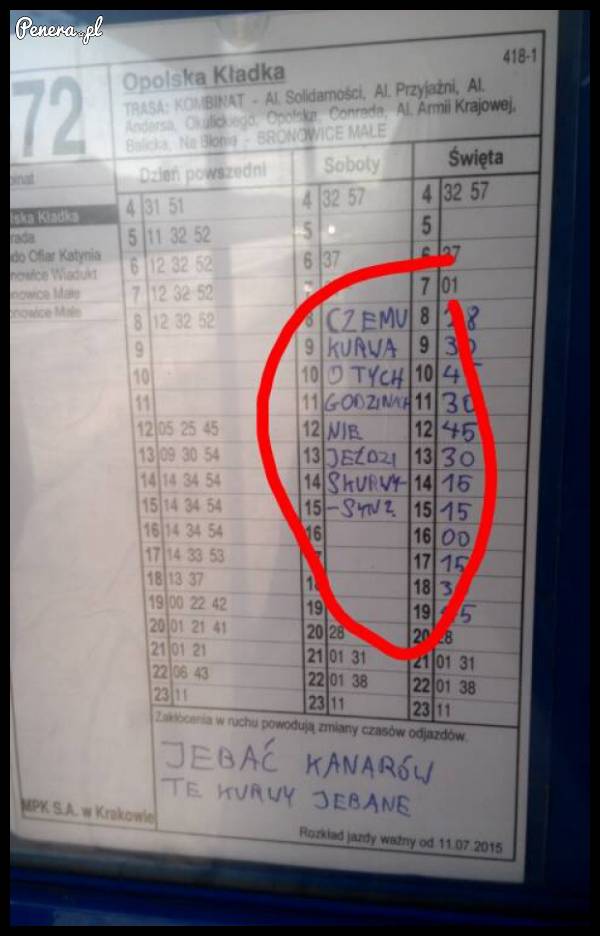 Penera.pl
418-1
72
Opolska Kładka
TRASA: KOMBINAT - Al. Solidarności, Al. Przyjaźni, Al.
Andersa, Okulickiego, Opolska, Conrada, Al. Armii Krajowej,
Balicka, Na Błonie - BRONOWICE MAŁE
Dzień powszedni Soboty Święta
4 31 51 4 32 57 4 32 57
5 11 32 52 5 5
6 12 32 52 6 37 6 37
7 12 32 52 7 01
8 12 32 52 8 CZEMU 8
9 9 KURWA 9 30
10 10 O TYCH 10
11 11 GODZINACH 11 30
12 05 25 45 12 NIE 12 45
13 09 30 54 13 JEŹDZI 13 30
14 14 34 54 14 SKURWY- 14 15
15 14 34 54 15 -SYNZ 15 15
16 14 34 54 16 16 00
17 14 33 53 17 15
18 13 37 18
19 00 22 42 19 19
20 01 21 41 20 28 20 28
21 01 21 21 01 31 21 01 31
22 06 43 22 01 38 22 01 38
23 11 23 11 23 11
ska Kładka
do Ofiar Katynia
nowice Wiadukt
nowice Małe
nowice Małe
Zakłócenia w ruchu powodują zmiany czasów odjazdów.
JEBAĆ KANARÓW
TE KURWY JEBANE
MPK S.A. w Krakowie
Rozkład jazdy ważny od 11.07.2015